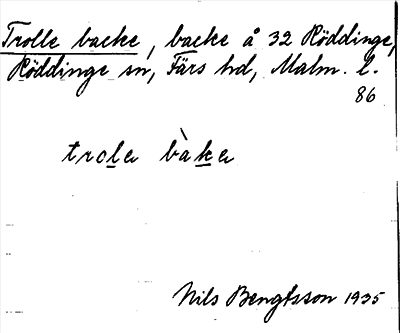 Trolle backe, backe å 32 Röddinge,
Röddinge sn, Färs hd, Malm. l.
86
trolə bàkə
Nils Bengtsson 1935